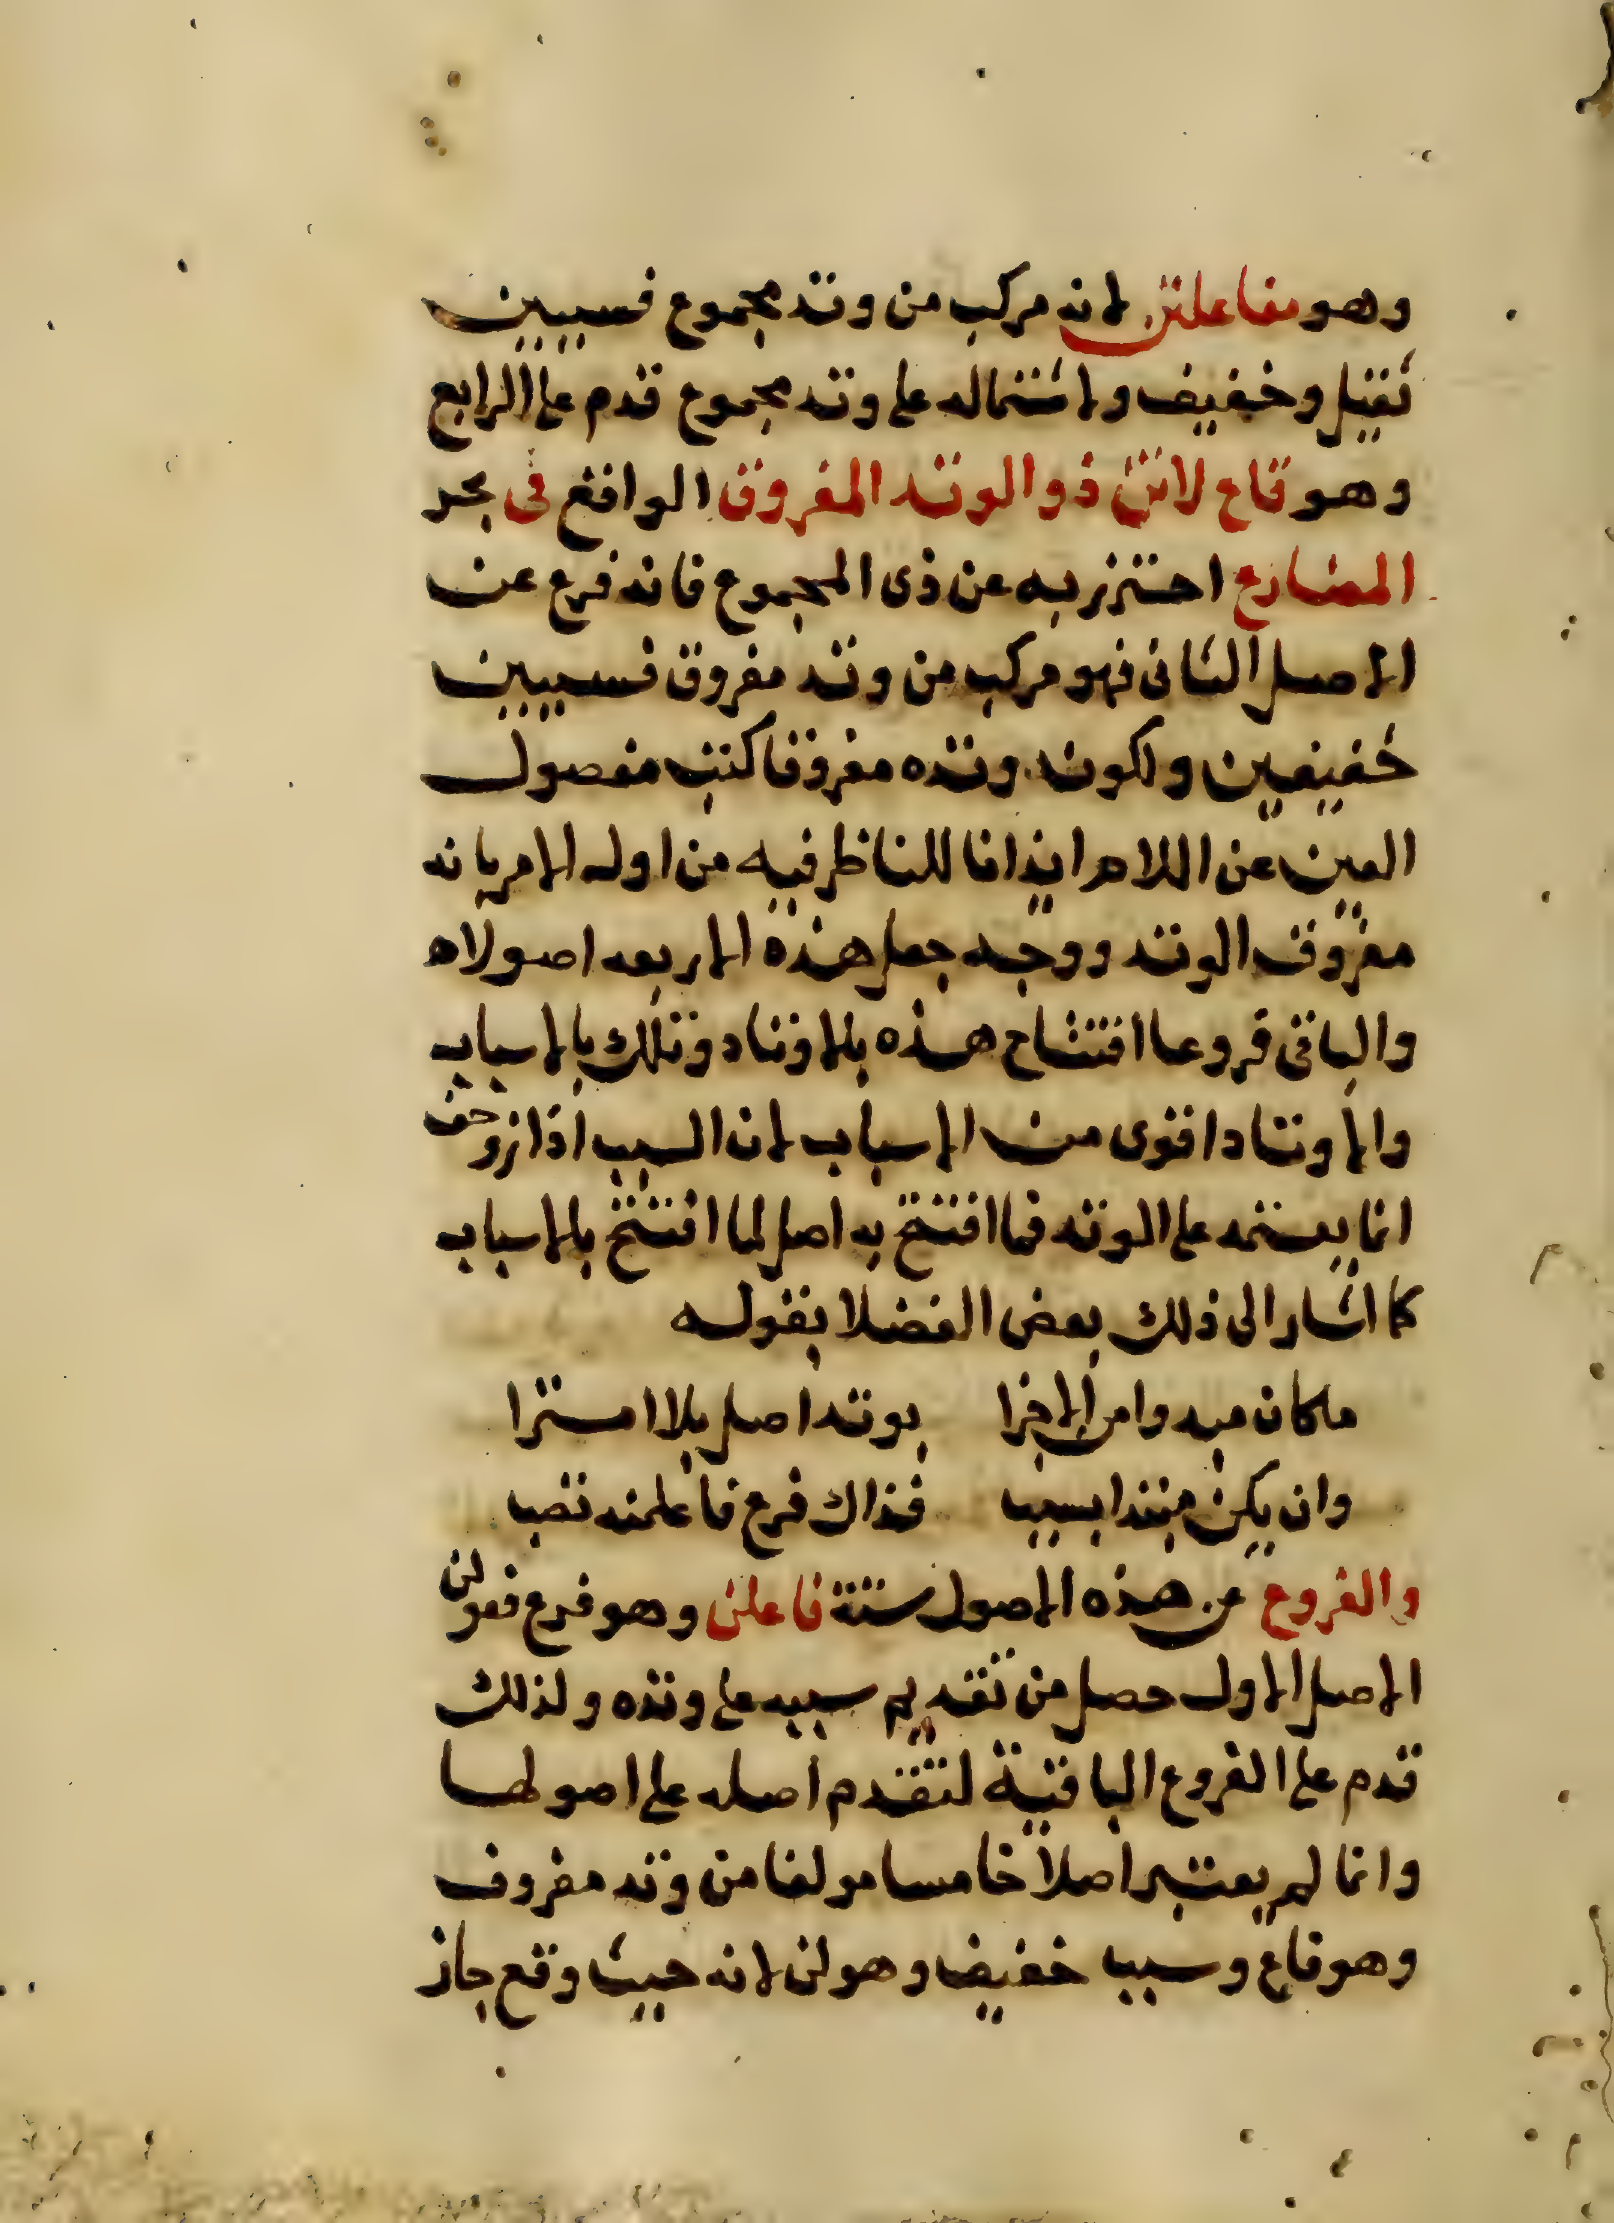 وهو مفاعلتن لانه مركب من وتد مجموع فسببين
ثقيل وخفيف ولاشتماله على وتد مجموع قدم على الرابع
وهو فاع لاتن ذو الوتد المفروق الواقع فى بحر
المضارع احترز به عن ذى المجموع فانه فرع عن
الاصل الثانى فهو مركب من وتد مفروق فسببين
خفيفين ولكون وتده مفروقا كتب مفصول
العين عن اللام ايذانا للناظر فيه من اول الامر بانه
مفروق الوتد ووجه جعل هذه الاربعه اصولا
والباقى فروعا افتتاح هذه بالاوتاد وتلك بالاسباب
والاوتاد اقوى من الاسباب لان السبب اذا زوحف
انما يعتمد على الوتد فما افتتح به اصل لما افتتح بالاسباب
كما اشار الى ذلك بعض الفضلا بقوله
ماكان مبدوا من الاجزا بوتد اصل بلا امترا
وان يكن مبتدا بسبب فذاك فرع فاعلمنه تصب
والفروع عن هذه الاصول ستة فاعلن وهو فرع فعولن
الاصل الاول حصل من تقديم سببه على وتده ولذلك
قدم على الفروع الباقية لتقدم اصله على اصولها
وانما لم يعتبر اصلا خامسا مولفا من وتد مفروق
وهو فاع وسبب خفيف وهو لن لانه حيث وقع جاز